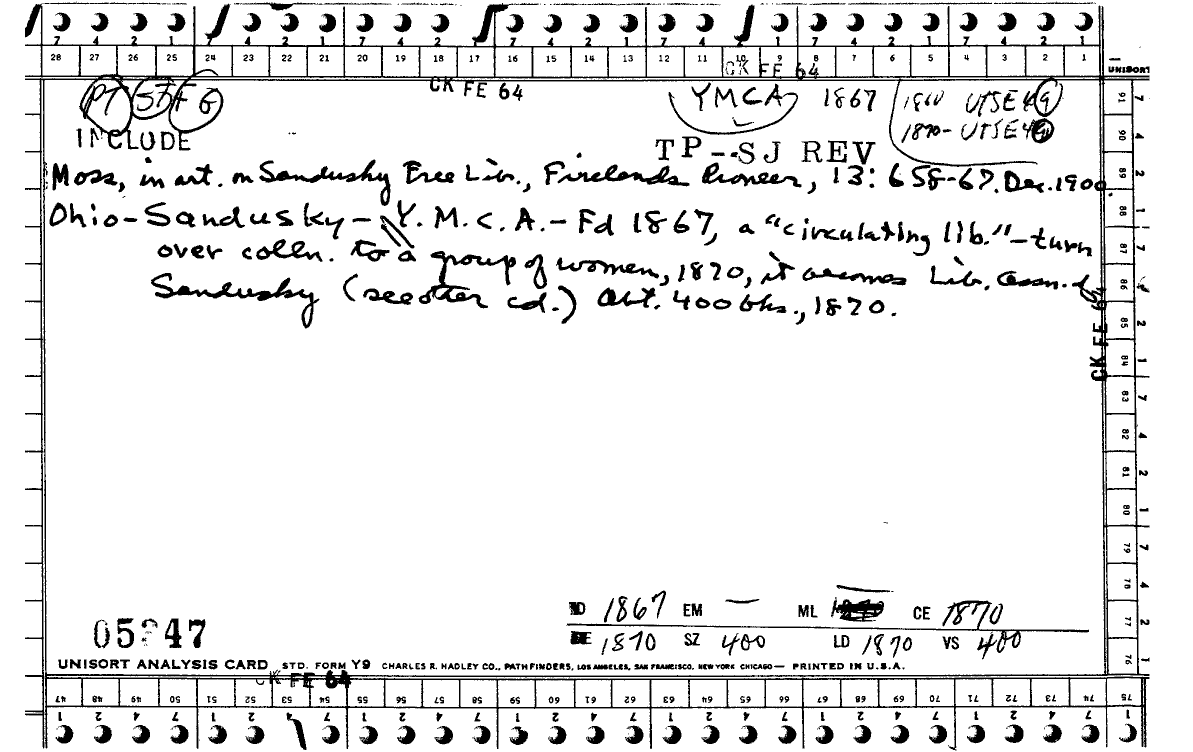 7 4 2 1 7 4 2 1 7 4 2 1 7 4 2 1 7 4 2 1 7 4 2 1 7 4 2 1
28 27 26 25 24 23 22 21 20 19 18 17 16 15 14 13 12 11 10 9 8 7 6 5 4 3 2 1
CK FE 64
UNISORT
PT SF F G
CK FE 64
YMCA 1867
1860 UTSE
1870- UTSE
INCLUDE
TP--SJ REV
Moss, in art. on Sandusky Free Lib., Firelands Pioneer, 13: 658-67. Dec. 1900.
Ohio-Sandusky- Y.M.C.A.- Fd 1867, a "circulating lib."-turn
over colln. to a group of women, 1870, it becomes Lib. Assn. of
Sandusky (see other cd.) Abt. 400 bks., 1870.
CK FE 64
91 90 89 88 87 86 85 84 83 82 81 80 79 78 77 76
7 4 2 1 7 4 2 1 7 4 2 1 7 4 2 1
1867 EM — ML CE 1870
1870 SZ 400 LD 1870 VS 400
UNISORT ANALYSIS CARD STD. FORM Y9 CHARLES R. HADLEY CO., PATHFINDERS, LOS ANGELES, SAN FRANCISCO, NEW YORK CHICAGO — PRINTED IN U.S.A.
CK FE 64
47 48 49 50 51 52 53 54 55 56 57 58 59 60 61 62 63 64 65 66 67 68 69 70 71 72 73 74 75
1 2 4 7 1 2 4 7 1 2 4 7 1 2 4 7 1 2 4 7 1 2 4 7 1 2 4 7 1